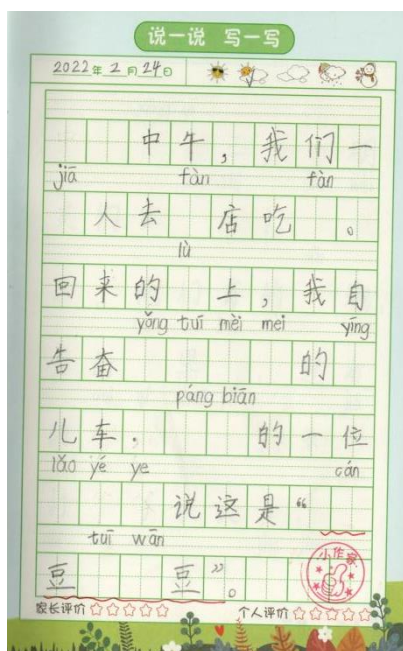 说一说 写一写
2022年2月24日
中牛，我们一
jiā fàn fàn
人去 店吃 。
lù
回来的 上，我自
yǒng tuī mèi mei yīng
告奋 的
páng biān
儿车， 的一位
lǎo yé ye cán
说这是“
tuī wān
豆 豆”。
小作家
家长评价 个人评价